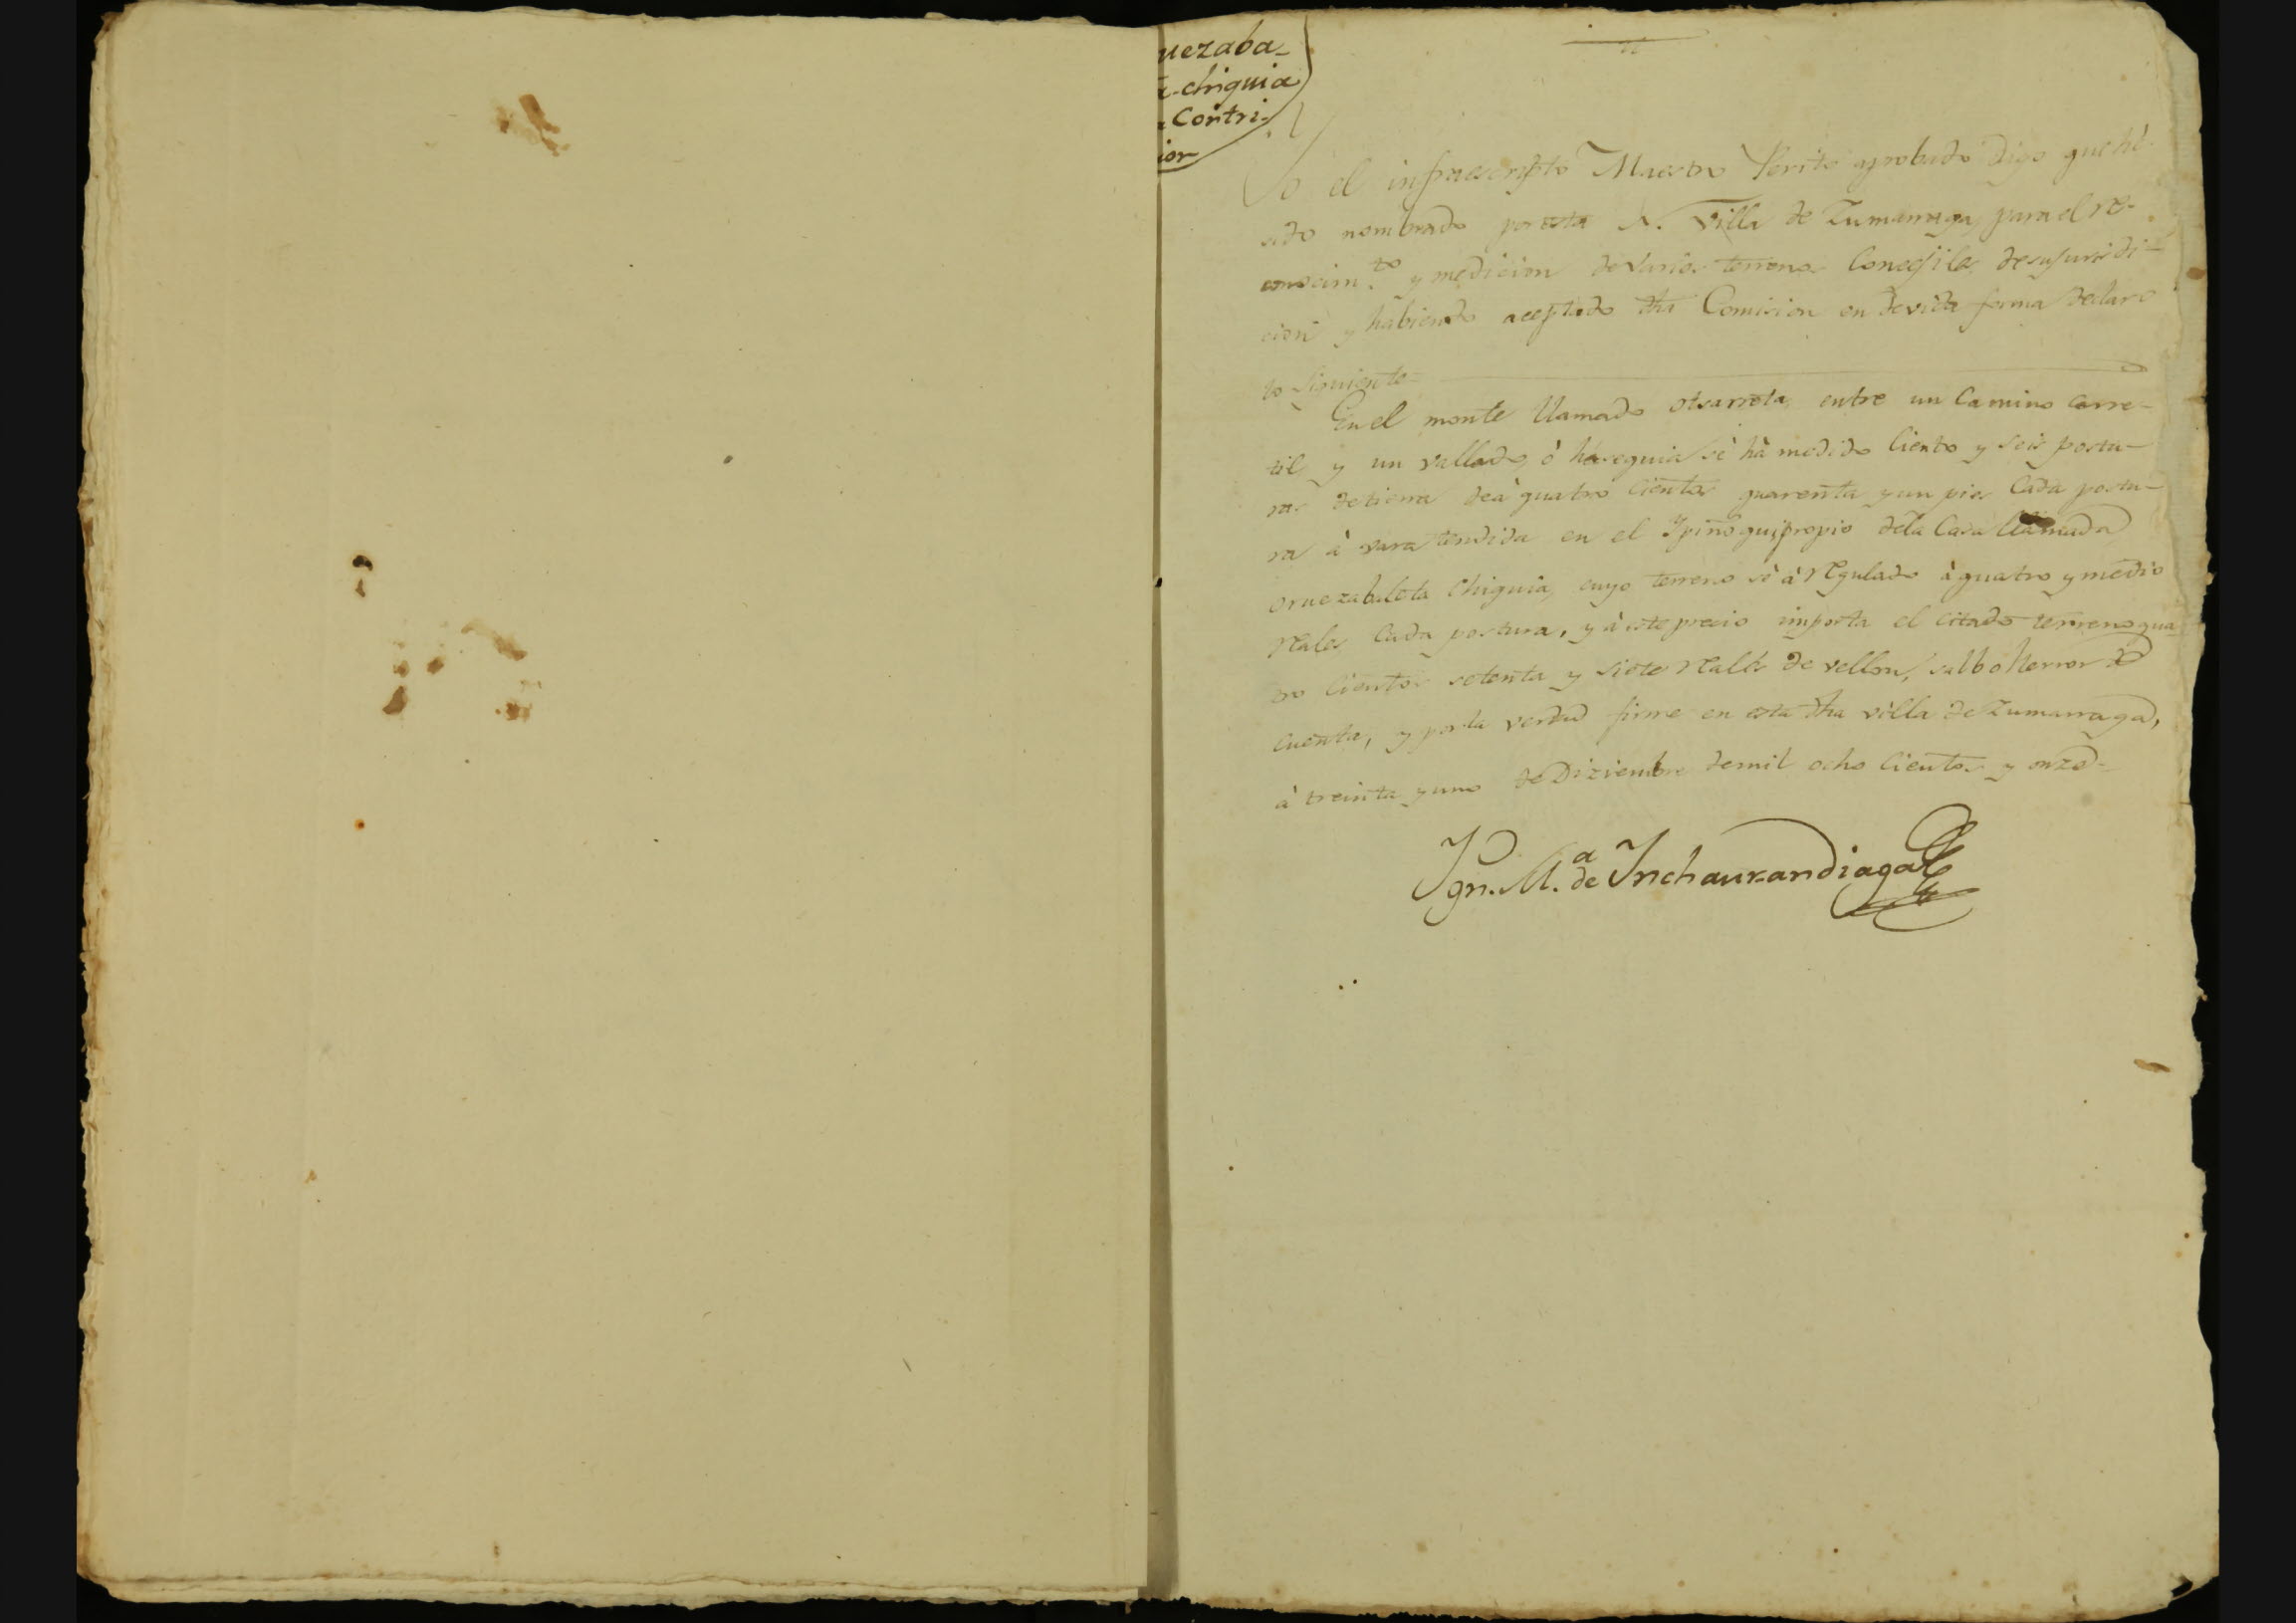 uezaba-
a-chiquia
a Contri-
ior
Yo el infraescripto Maestro Perito aprobado Digo que hè
sido nombrado por esta N. Villa de Zumarraga, para el re-
conocim.to y medicion de varios terrenos Concejiles, de su jurisdi-
cion y habiendo aceptado dha Comision en devida forma declaro
lo siguiente
En el monte llamado otsarreta, entre un Camino carre-
til, y un vallado, ò haseguia sè hà medido Ciento y seis postu-
ras de tierra de à quatro Cientos quarenta y un pies Cada postu-
ra à vara tendida en el Ypiñogui, propio de la Casa llamada
oruezabaleta Chiquia, cuyo terreno sè à regulado à quatro y medio
reales Cada postura, y à este precio importa el citado terreno qua
tro Cientos setenta y siete reales de vellon, salbo herror de
Cuenta, y por la verdad firme en esta dha villa de Zumarraga,
à treinta y uno de Diziembre de mil ocho Cientos y onze-
Ygn. M.a de Ynchaurandiaga